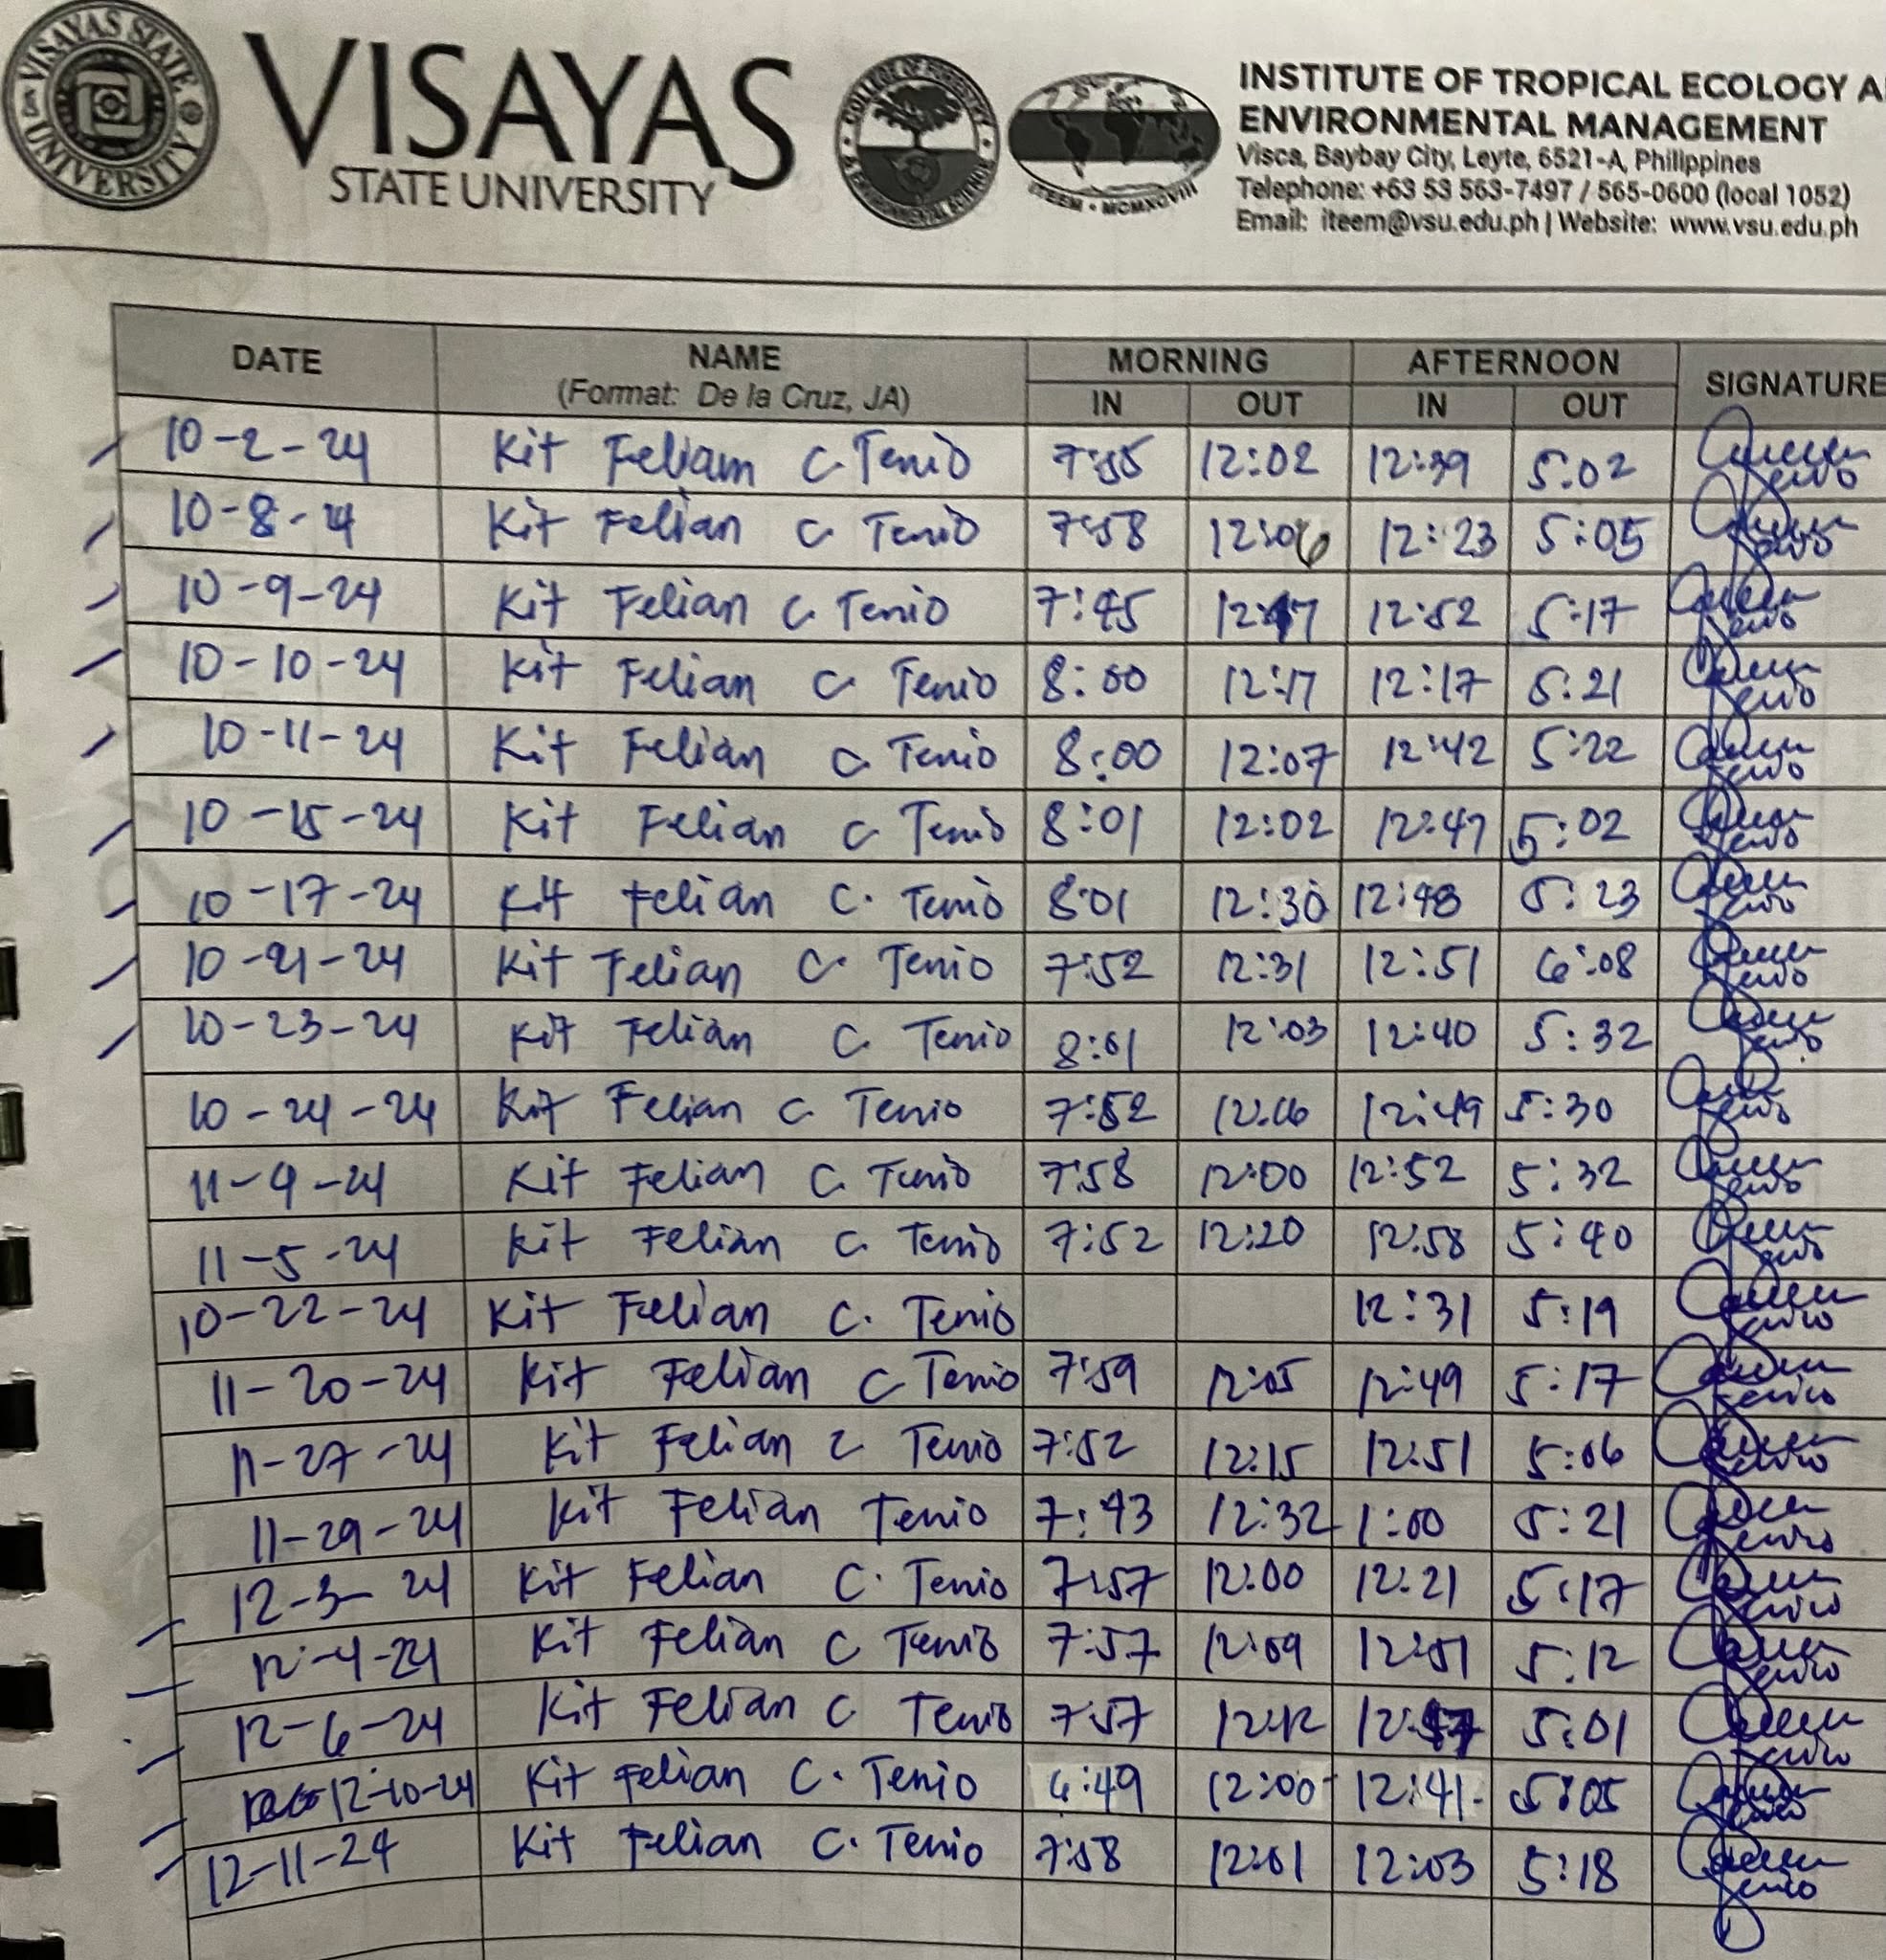 VISAYAS STATE UNIVERSITY
VISAYAS
STATE UNIVERSITY
COLLEGE OF FORESTRY & ENVIRONMENTAL SCIENCE
ITEEM • MCMXCVIII
INSTITUTE OF TROPICAL ECOLOGY A
ENVIRONMENTAL MANAGEMENT
Visca, Baybay City, Leyte, 6521-A, Philippines
Telephone: +63 53 563-7497 / 565-0600 (local 1052)
Email: iteem@vsu.edu.ph | Website: www.vsu.edu.ph
DATE NAME (Format: De la Cruz, JA) MORNING AFTERNOON SIGNATURE
IN OUT IN OUT
10-2-24 Kit Felian C. Tenio 7:55 12:02 12:39 5:02
10-8-24 Kit Felian C Tenio 7:58 12:06 12:23 5:05
10-9-24 Kit Felian C. Tenio 7:45 12:17 12:52 5:17
10-10-24 Kit Felian C Tenio 8:00 12:17 12:17 5:21
10-11-24 Kit Felian C Tenio 8:00 12:07 12:42 5:22
10-15-24 Kit Felian C Tenio 8:01 12:02 12:47 5:02
10-17-24 Kit Felian C. Tenio 8:01 12:30 12:48 5:23
10-21-24 Kit Felian C. Tenio 7:52 12:31 12:51 6:08
10-23-24 Kit Felian C. Tenio 8:01 12:03 12:40 5:32
10-24-24 Kit Felian C. Tenio 7:52 12:49 5:30
11-4-24 Kit Felian C. Tenio 7:58 12:00 12:52 5:32
11-5-24 Kit Felian C. Tenio 7:52 12:20 12:58 5:40
10-22-24 Kit Felian C. Tenio 12:31 5:19
11-20-24 Kit Felian C Tenio 7:59 12:05 12:49 5:17
11-27-24 Kit Felian C Tenio 7:52 12:15 12:51 5:06
11-29-24 Kit Felian Tenio 7:43 12:32 1:00 5:21
12-3-24 Kit Felian C. Tenio 7:57 12:00 12:21 5:17
12-4-24 Kit Felian C Tenio 7:57 12:09 12:51 5:12
12-6-24 Kit Felian C Tenio 7:57 12:12 5:01
12-10-24 Kit Felian C. Tenio 6:49 12:00 12:41 5:05
12-11-24 Kit Felian C. Tenio 7:58 12:01 12:03 5:18